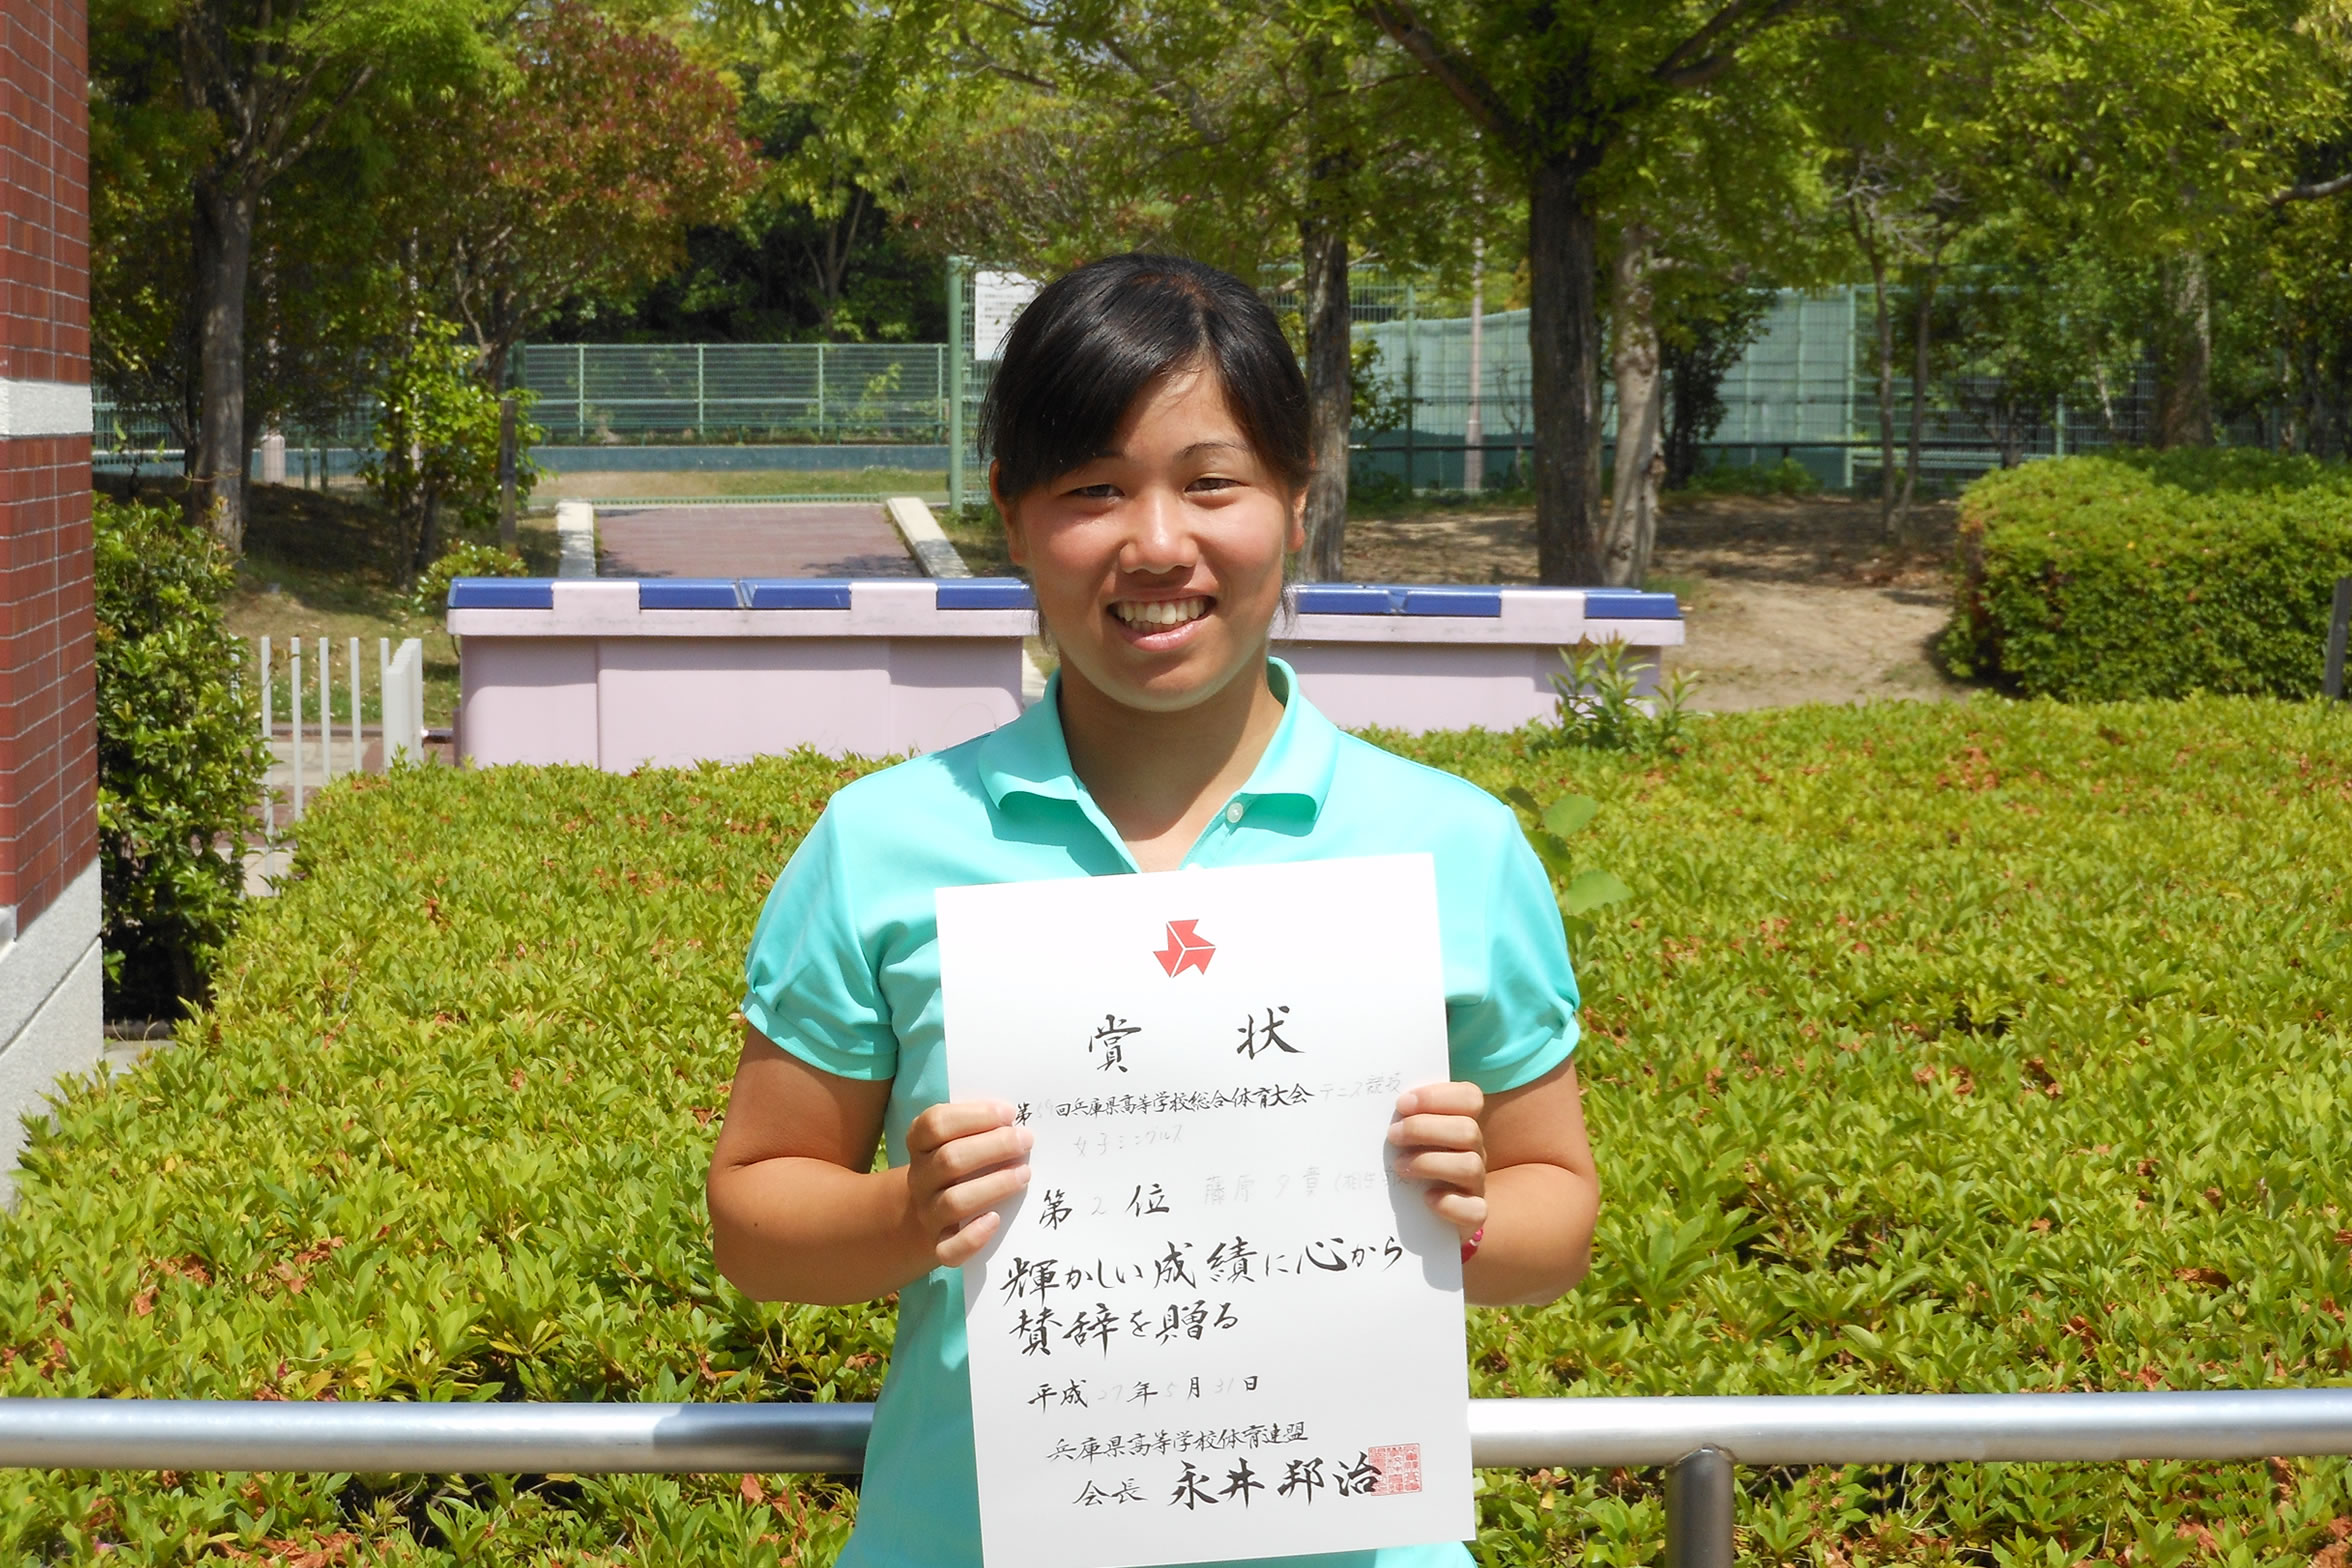 賞状
第59回兵庫県高等学校総合体育大会 テニス競技
女子シングルス
第2位 藤原夕貴
輝かしい成績に心から
賛辞を贈る
平成27年5月31日
兵庫県高等学校体育連盟
会長 永井邦治